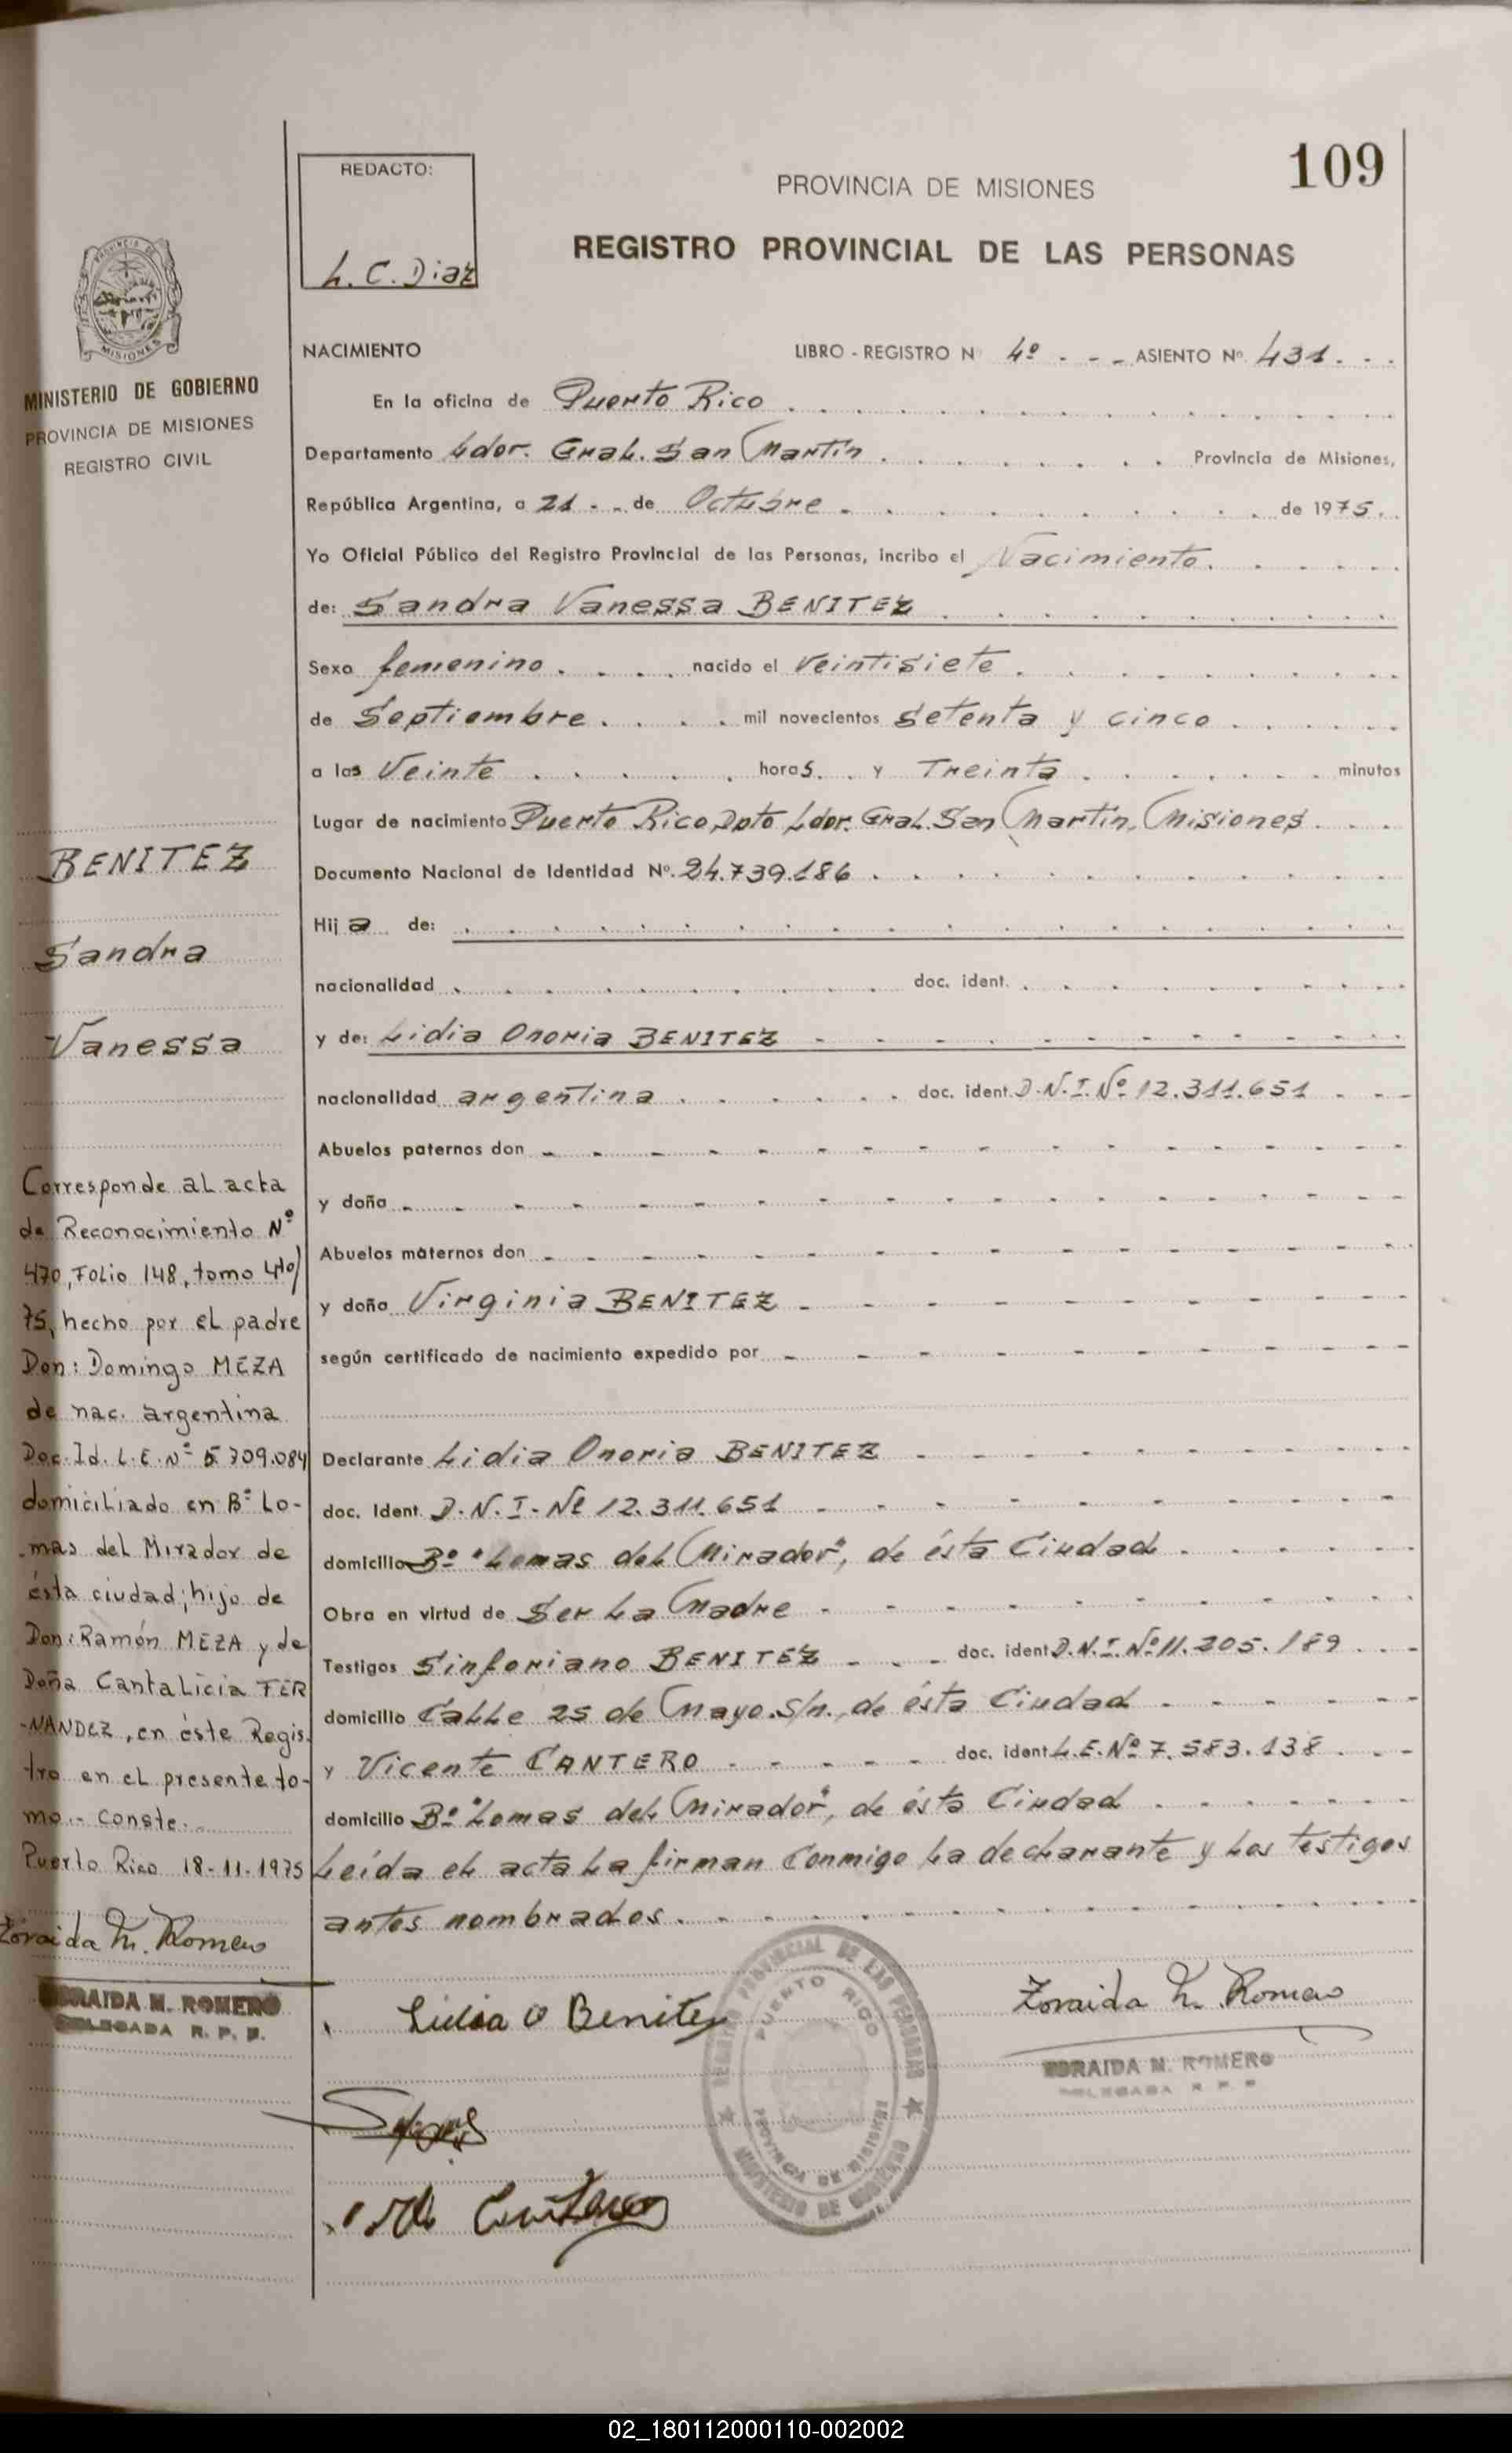 109
REDACTO:
L. C. Diaz
PROVINCIA DE MISIONES
REGISTRO PROVINCIAL DE LAS PERSONAS
PROVINCIA DE
MISIONES
MINISTERIO DE GOBIERNO
PROVINCIA DE MISIONES
REGISTRO CIVIL
NACIMIENTO LIBRO - REGISTRO N 4º - - - ASIENTO Nº 431 . . .
En la oficina de Puerto Rico
Departamento Ldor. Gral. San Martín Provincia de Misiones,
República Argentina, a 21 - - de Octubre de 1975.
Yo Oficial Público del Registro Provincial de las Personas, incribo el Nacimiento
de: Sandra Vanessa BENITEZ
Sexo femenino nacido el Veintisiete
de Septiembre mil novecientos Setenta y cinco
a las Veinte horas y Treinta minutos
Lugar de nacimiento Puerto Rico, Dpto Ldor. Gral. San Martín, Misiones
Documento Nacional de Identidad Nº. 24.739.186
Hij a de:
nacionalidad doc. ident.
y de: Lidia Onoria BENITEZ
nacionalidad argentina doc. ident. D.N.I. Nº 12.311.651
Abuelos paternos don
y doña
Abuelos maternos don
y doña Virginia BENITEZ
según certificado de nacimiento expedido por
Declarante Lidia Onoria BENITEZ
doc. Ident. D.N.I- Nº 12.311.651
domicilio Bº "Lomas del Mirador", de ésta Ciudad
Obra en virtud de Ser La Madre
Testigos Sinforiano BENITEZ doc. ident. D.N.I. Nº 11.205.189
domicilio Calle 25 de Mayo. S/n., de ésta Ciudad
y Vicente CANTERO doc. ident. L.E. Nº 7.583.138
domicilio Bº "Lomas del Mirador", de ésta Ciudad
Leída el acta La firman Conmigo La declarante y Los testigos
antes nombrados.
BENITEZ
Sandra
Vanessa
Corresponde al acta
de Reconocimiento Nº
470, Folio 148, tomo 4to/
75, hecho por el padre
Don: Domingo MEZA
de nac. argentina
Doc. Id. L.E. Nº 5.709.084
domiciliado en Bº Lo-
mas del Mirador de
ésta ciudad; hijo de
Don: Ramón MEZA y de
Doña Cantalicia FER
-NANDEZ, en éste Regis-
tro en el presente to-
mo.- Conste.
Puerto Rico 18-11-1975
Zoraida M. Romero
ZORAIDA M. ROMERO
DELEGADA R. P. P.
Lidia O Benitez
REGISTRO PROVINCIAL DE LAS PERSONAS
PUERTO RICO
PROVINCIA DE MISIONES
MINISTERIO DE GOBIERNO
Zoraida M. Romero
ZORAIDA M. ROMERO
DELEGADA R. P. P.
02_180112000110-002002